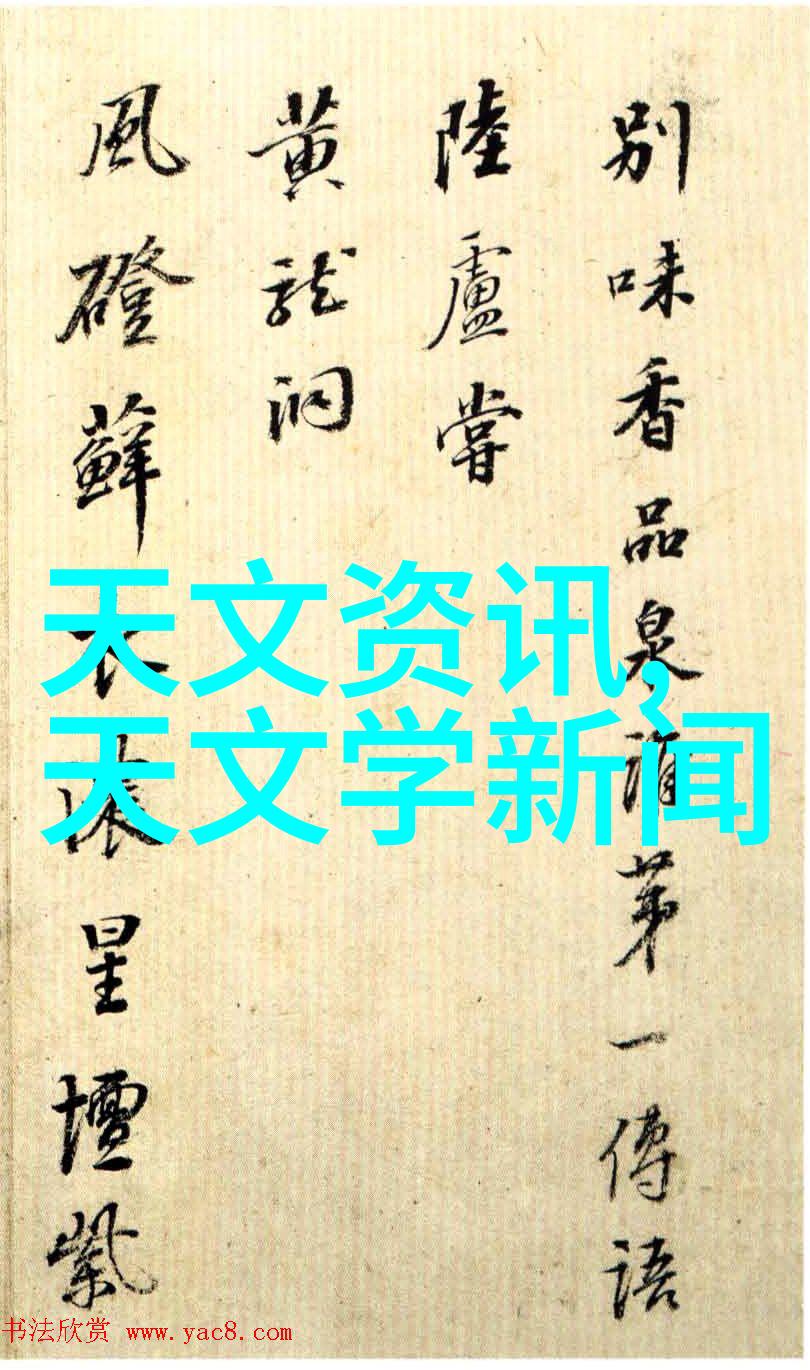 别味香品泉須苐一傳語
陸廬嘗
黄龍洞
風磴蘚衣濃星壇紫
天文资讯,
天文学新闻
书法欣赏 www.yac8.com